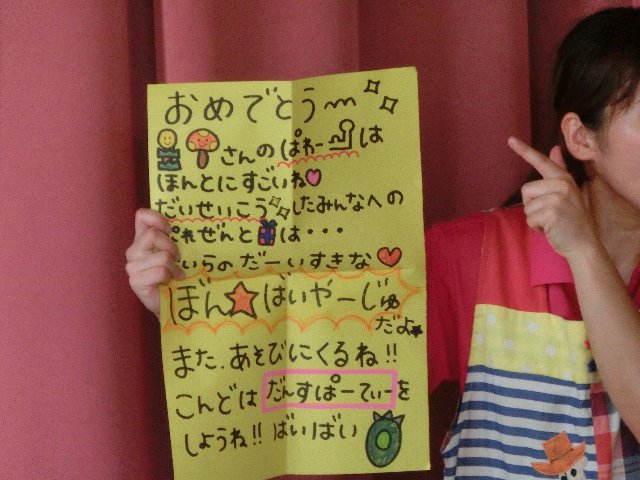 おめでとう〜
さんの ぱわーは
ほんとにすごいね♡
だいせいこう したみんなへの
ぷれぜんと は・・・
いらの だーいすきな♡
ぼん☆ばいやーじゅ
だよ★
また、あそびにくるね!!
こんどは だんすぱーてぃーを
しようね!! ばいばい